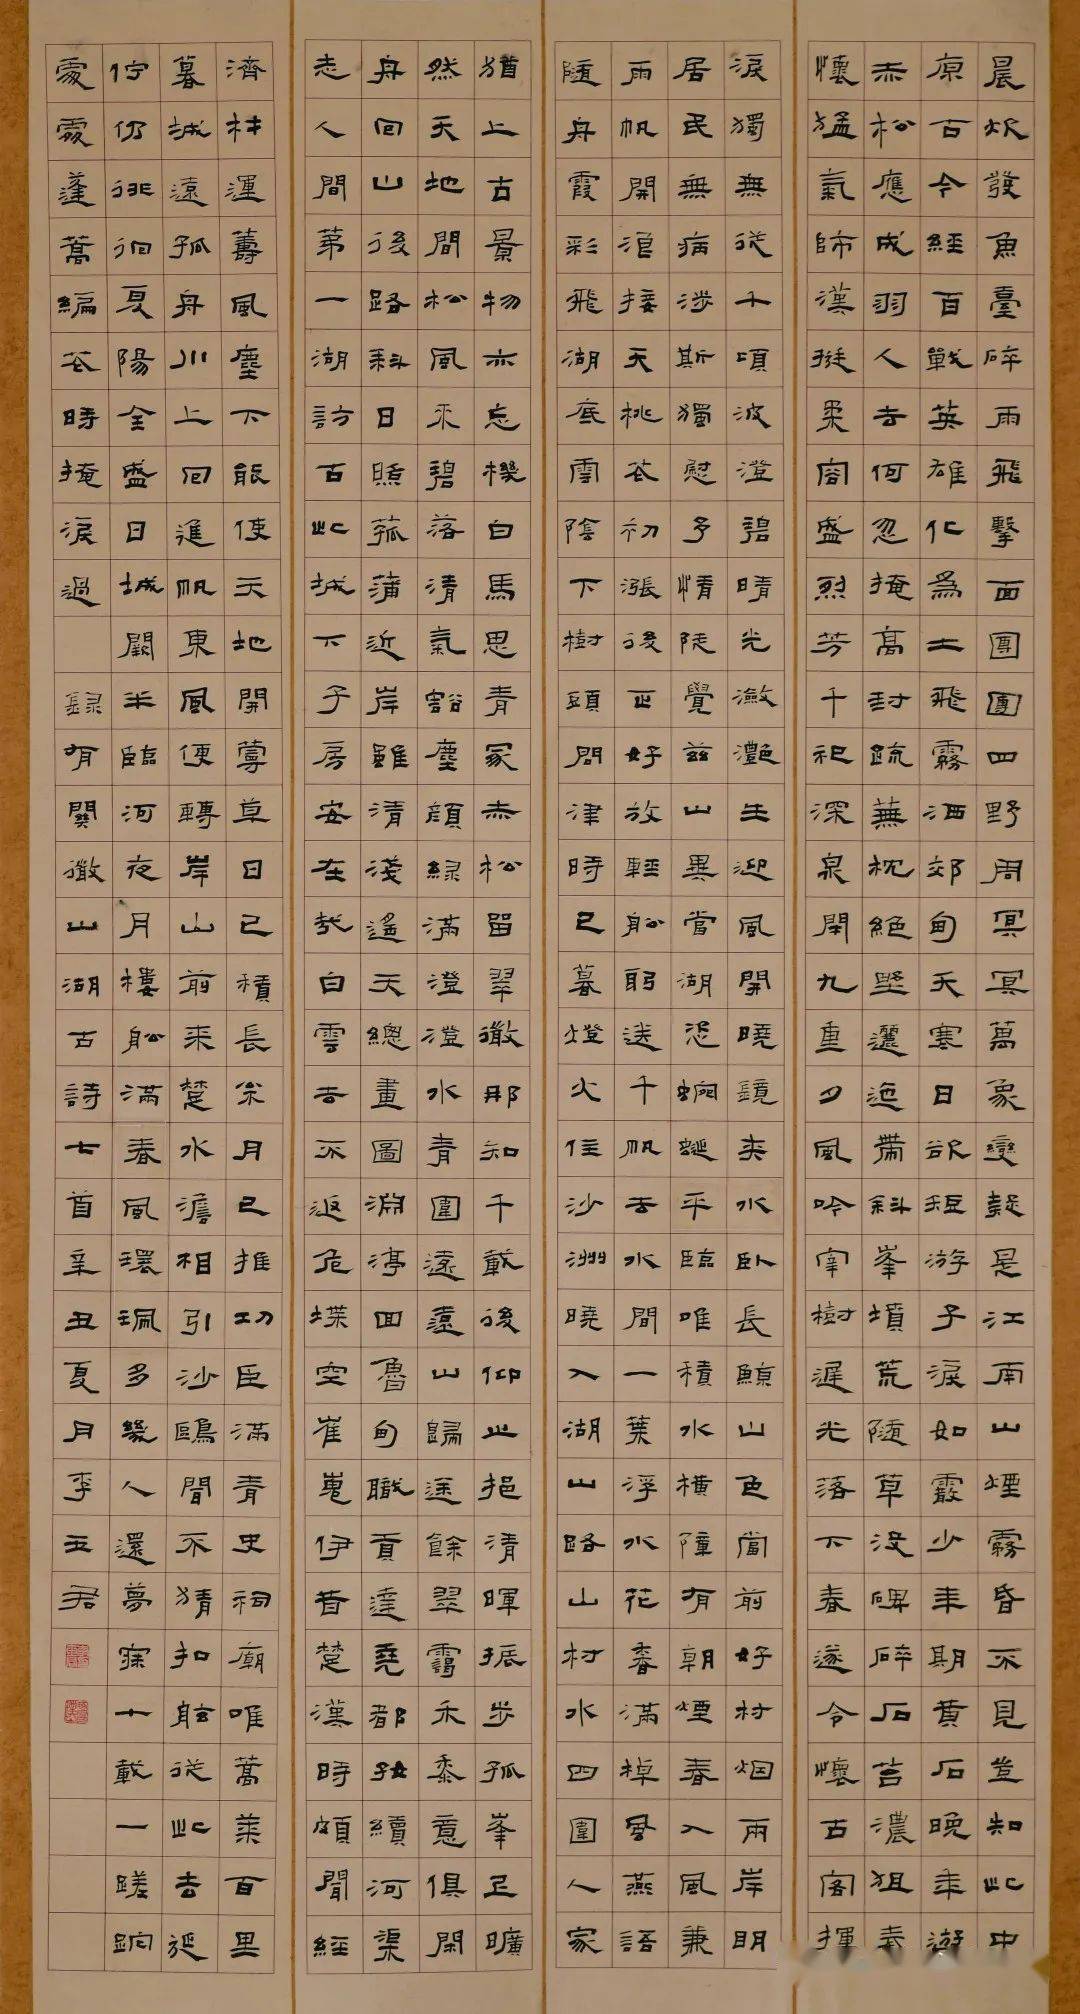 晨炊發魚臺碎雨飛擊面團團四野周冥冥萬象變疑是江南山煙霧昏不見豈知此中
原古今經百戰英雄化為土飛霧洒郊甸天寒日欲短游子淚如霰少年期黃石晚年游
赤松應成羽人去何忽掩高封疏蕪枕絕壁邐迤帶斜峯墳荒隨草沒碑碎石苔濃狙秦
懷猛氣師漢挺柔容盛烈芳千祀深泉閉九重夕風吟宰樹遲光落下舂遂令懷古客揮
淚獨無從千頃波澄碧晴光瀲灩生迎風開曉鏡夾水臥長鯨山色當前好村烟兩岸明
居民無病涉斯獨慰予情陡覺茲山異當湖恐蜿蜒平臨唯積水橫障有朝煙春入風兼
雨帆開浪接天桃花初漲後正好放輕船躬送千帆去水間一葉浮水花香滿棹風燕語
隨舟霞彩飛湖底雲陰下樹頭問津時已暮燈火住沙洲曉入湖山路山村水四圍人家
猶上古景物亦忘機白馬思青冢赤松留翠微那知千載後仰止挹清暉振步孤峯足曠
然天地間松風來碧落清氣豁塵顏綠滿澄澄水青圍遠遠山歸途餘翠靄禾黍意俱閑
舟回山後路斜日照菰蒲近岸雖清淺遙天總畫圖淵渟回魯甸職貢達堯都孜續河渠
志人間第一湖訪古此城下子房安在哉白雲去不返危堞空崔嵬伊昔楚漢時頗聞經
濟材運籌風塵下能使天地開蔓草日已積長岑月已推功臣滿青史祠廟唯蒿萊百里
暮城遠孤舟川上回進帆東風便轉岸山前來楚水澹相引沙鷗閒不猜扣舷從此去延
佇仍徘徊夏陽全盛日城闕半臨河夜月樓船滿春風環珮多幾人還夢寐十載一蹉跎
處處蓬蒿編花時掩淚過
錄有關微山湖古詩七首辛丑夏月李五君